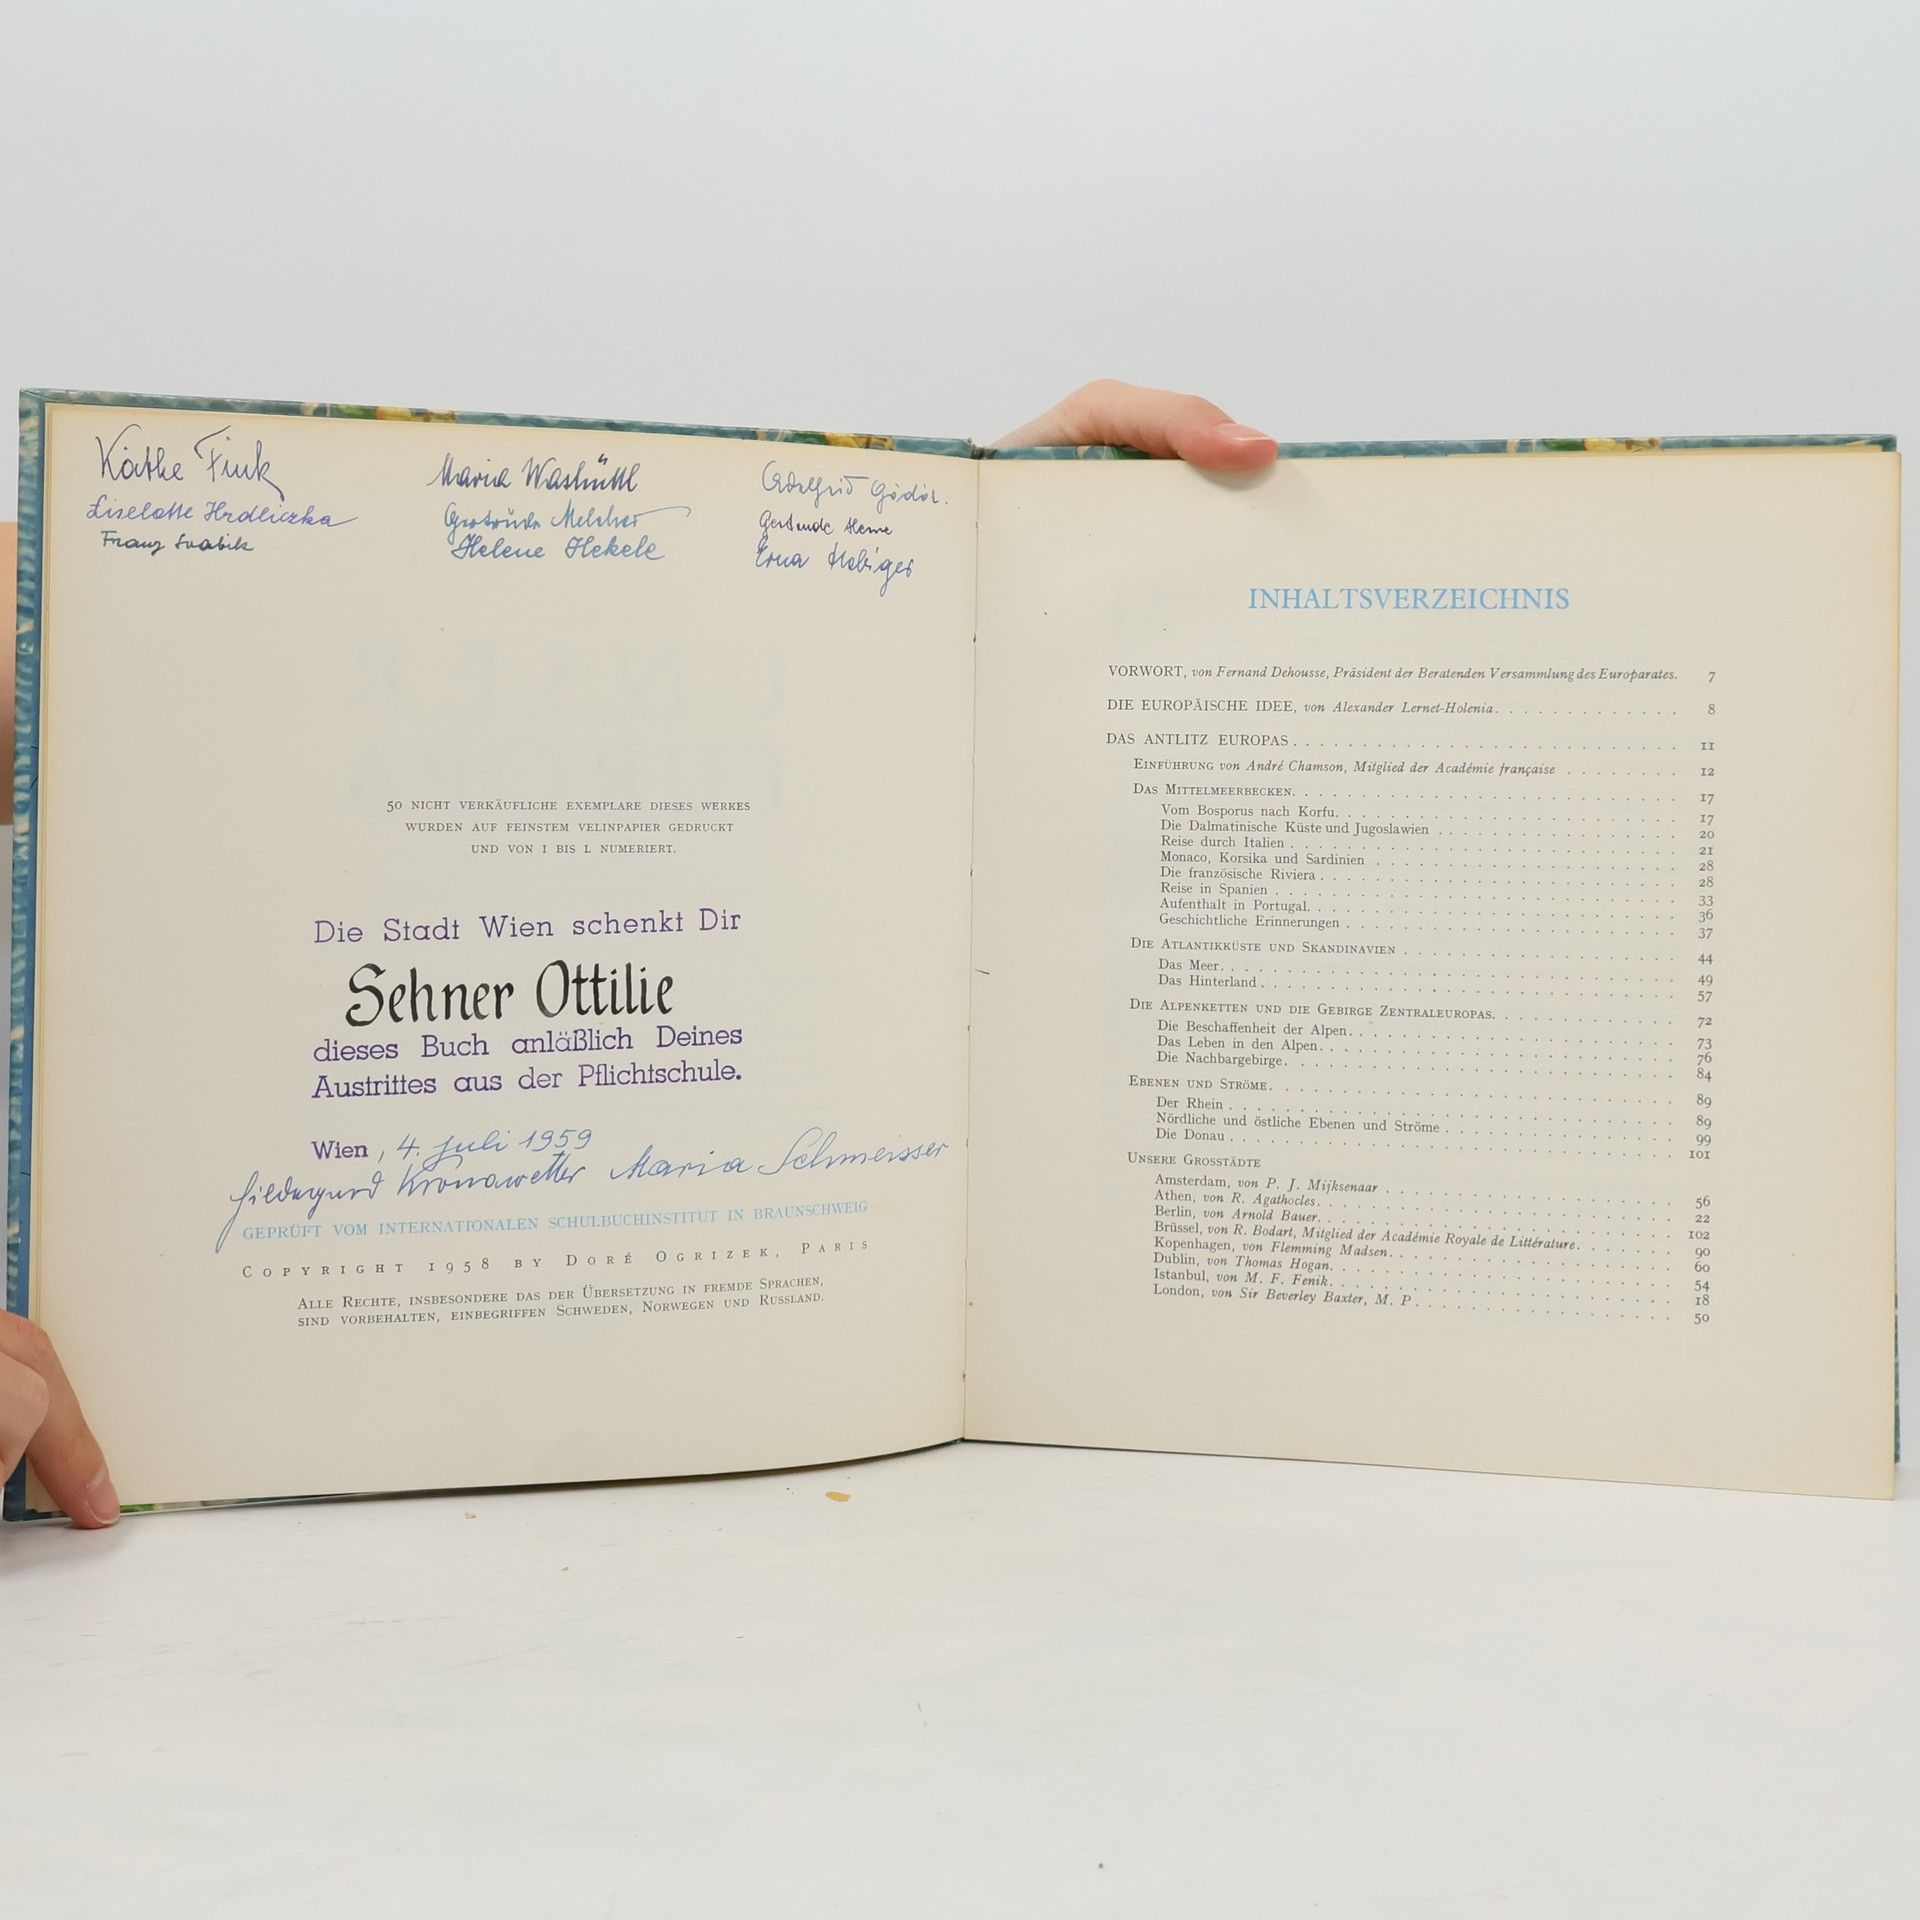 Käthe Fink
Liselotte Hrdliczka
Franz Svabik
Maria Washüttl
Gertrude Melcher
Helene Hekele
Gertrude
Erna
50 NICHT VERKÄUFLICHE EXEMPLARE DIESES WERKES
WURDEN AUF FEINSTEM VELINPAPIER GEDRUCKT
UND VON I BIS L NUMERIERT.
Die Stadt Wien schenkt Dir
Sehner Ottilie
dieses Buch anläßlich Deines
Austrittes aus der Pflichtschule.
Wien, 4. Juli 1959
Hildegund Kronawetter Maria Schmeisser
GEPRÜFT VOM INTERNATIONALEN SCHULBUCHINSTITUT IN BRAUNSCHWEIG
COPYRIGHT 1958 BY DORÉ OGRIZEK, PARIS
ALLE RECHTE, INSBESONDERE DAS DER ÜBERSETZUNG IN FREMDE SPRACHEN,
SIND VORBEHALTEN, EINBEGRIFFEN SCHWEDEN, NORWEGEN UND RUSSLAND.
INHALTSVERZEICHNIS
VORWORT, von Fernand Dehousse, Präsident der Beratenden Versammlung des Europarates. 7
DIE EUROPÄISCHE IDEE, von Alexander Lernet-Holenia. 8
DAS ANTLITZ EUROPAS. 11
EINFÜHRUNG von André Chamson, Mitglied der Académie française 12
DAS MITTELMEERBECKEN. 17
Vom Bosporus nach Korfu. 17
Die Dalmatinische Küste und Jugoslawien 20
Reise durch Italien 21
Monaco, Korsika und Sardinien 28
Die französische Riviera 28
Reise in Spanien 33
Aufenthalt in Portugal. 36
Geschichtliche Erinnerungen 37
DIE ATLANTIKKÜSTE UND SKANDINAVIEN 44
Das Meer. 49
Das Hinterland 57
DIE ALPENKETTEN UND DIE GEBIRGE ZENTRALEUROPAS. 72
Die Beschaffenheit der Alpen. 73
Das Leben in den Alpen. 76
Die Nachbargebirge. 84
EBENEN UND STRÖME. 89
Der Rhein 89
Nördliche und östliche Ebenen und Ströme 99
Die Donau 101
UNSERE GROSSTÄDTE
Amsterdam, von P. J. Mijksenaar 56
Athen, von R. Agathocles. 22
Berlin, von Arnold Bauer. 102
Brüssel, von R. Bodart, Mitglied der Académie Royale de Littérature. 90
Kopenhagen, von Flemming Madsen. 60
Dublin, von Thomas Hogan. 54
Istanbul, von M. F. Fenik. 18
London, von Sir Beverley Baxter, M. P. 50